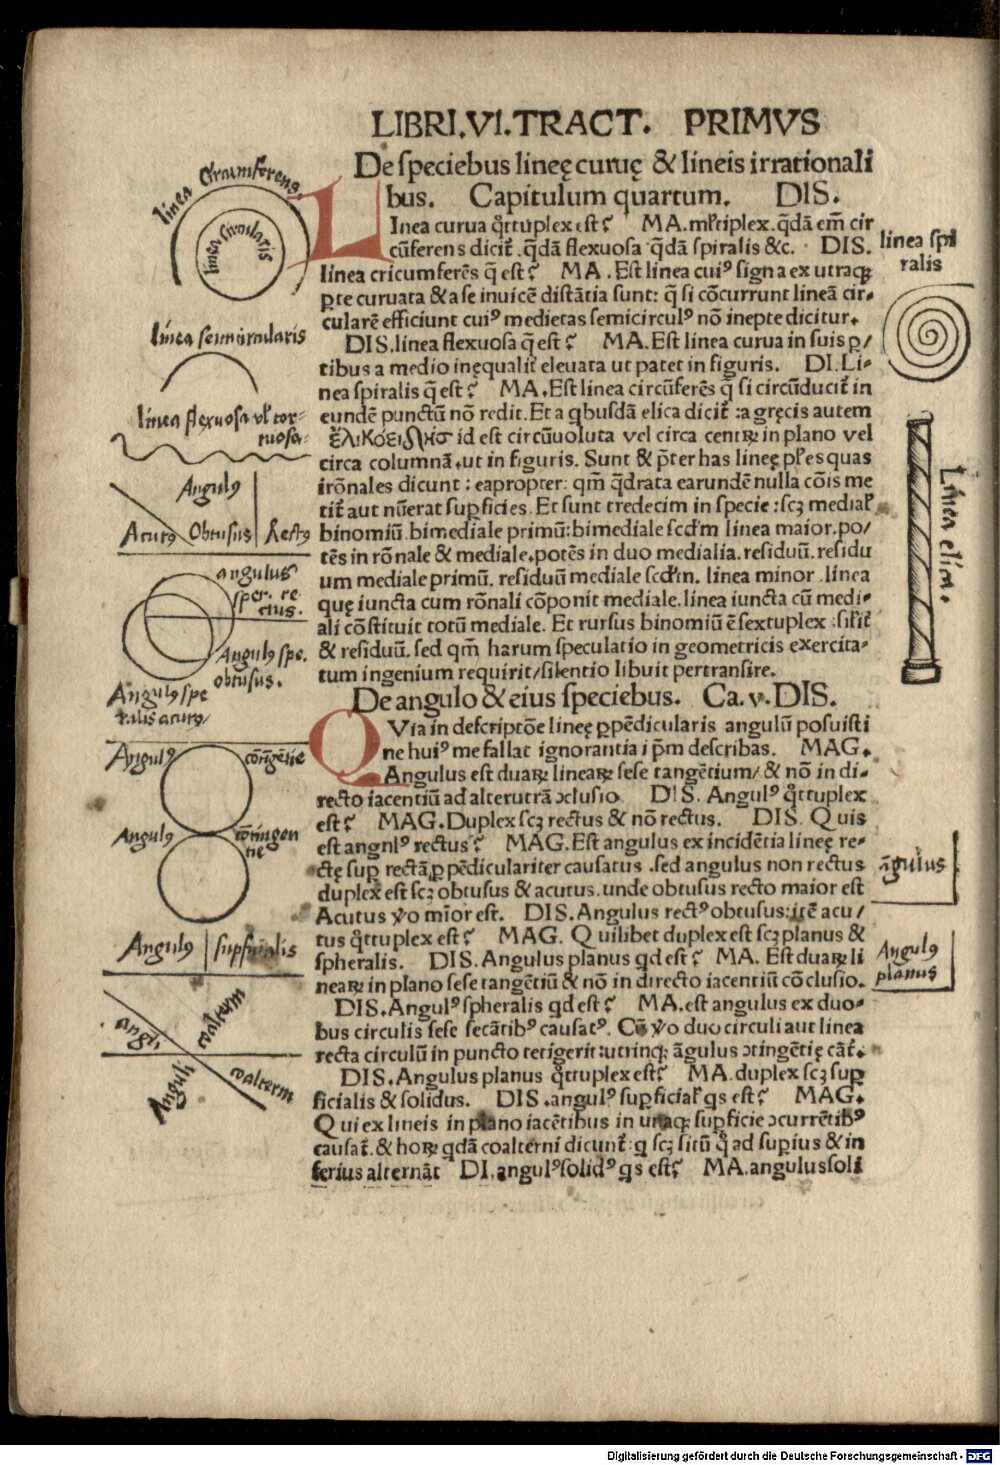 LIBRI.VI.TRACT. PRIMVS
De speciebus lineę curuę & lineis irrationali
bus. Capitulum quartum. DIS.
LInea curua q̊ttuplex est? MA.mľtiplex.q̄dā em̄ cir
cūferens dicit̃.q̄dā flexuosa q̄dā spiralis &c. DIS.
linea cricumferēs q̄ est? MA.Est linea cuiꝰ signa ex utraqꝫ
ꝑte curuata & a se inuicē distātia sunt: q̄ si cōcurrunt lineā cir-
cularē efficiunt cuiꝰ medietas semicirculꝰ nō inepte dicitur.
DIS.linea flexuosa q̄ est? MA.Est linea curua in suis ꝑ/
tibus a medio inęqualit̃ eleuata ut patet in figuris. DI.Li-
nea spiralis q̄ est? MA.Est linea circūferēs q̄ si circūducit̃ in
eundē punctū nō redit.Et a qbusdā elica dicit̃ :a gręcis autem
ἑλικοειδὴσ id est circūuoluta vel circa centꝝ in plano vel
circa columnā.ut in figuris. Sunt & p̄ter has lineę pľes quas
irōnales dicunt : eapropter: qm̄ q̄drata earundē nulla cōis me
tit̃ aut nūerat suꝑficies.Et sunt tredecim in specie :scꝫ medial̃
binomiū.bimediale primū:bimediale scd̃m linea maior.po/
tēs in rōnale & mediale.potēs in duo medialia.residuū.residu
um mediale primū. residuū mediale scd̃m. linea minor .linea
quę iuncta cum rōnali cōponit mediale.linea iuncta cū medi-
ali cōstituit totū mediale. Et rursus binomiū ē sextuplex :sil̃it̃
& residuū. sed qm̄ harum speculatio in geometricis exercita-
tum ingenium requirit/silentio libuit pertransire.
De angulo & eius speciebus. Ca.v.DIS.
QVia in descriptōe lineę ꝑpēdicularis angulū posuisti
ne huiꝰ me fallat ignorantia ip̄m describas. MAG.
Angulus est duaꝝ lineaꝝ sese tangētium/ & nō in di-
recto iacentiū ad alterutrā ɔclusio. DIS. Angulꝰ q̊ttuplex
est? MAG.Duplex scꝫ rectus & nō rectus. DIS. Quis
est angnlꝰ rectus? MAG.Est angulus ex incidētia lineę re-
ctę suꝑ rectā ꝑpēdiculariter causatus .sed angulus non rectus
duplex est scꝫ obtusus & acutus.unde obtusus recto maior est
Acutus v̊o mīor est. DIS.Angulus rectꝰ obtusus: itē acu/
tus q̊ttuplex est? MAG. Quilibet duplex est scꝫ planus &
spheralis. DIS.Angulus planus qd est? MA. Est duaꝝ li
neaꝝ in plano sese tangētiū & nō in directo iacentiū cōclusio.
DIS.Angulꝰ spheralis qd est? MA.est angulus ex duo-
bus circulis sese secātibꝰ causatꝰ. Cū v̊o duo circuli aut linea
recta circulū in puncto tetigerit:utrinqꝫ āgulus ɔtingētię cāt̃.
DIS.Angulus planus q̊ttuplex est? MA.duplex scꝫ suꝑ
ficialis & solidus. DIS.angulꝰ suꝑficial̃ qs est? MAG.
Qui ex lineis in plano iacētibus in unaqꝫ suꝑficie ɔcurrētibꝰ
causat̃.& hoꝝ q̄dā coalterni dicunt̃: q scꝫ sitū q̊ ad suꝑius & in
ferius alternāt DI.angulꝰ solidꝰ qs est? MA.angulus soli
linea Circumferens.
linea circularis
linea semicircularis
linea flexuosa vľ tor-
tuosa.
Angulꝰ
Acutꝰ Obtusus Rectꝰ
angulus
sper. re-
ctus.
Angulꝰ spe.
obtusus.
Angulꝰ spe
ralis acutꝰ
Angulꝰ cōtīgētie
Angulꝰ cōtingen
tie
Angulꝰ suꝑficialis
angľi coalterni
Anguli coalterni
linea spi
ralis
Linea elica.
āgulus
Angulꝰ
planus
Digitalisierung gefördert durch die Deutsche Forschungsgemeinschaft - DFG